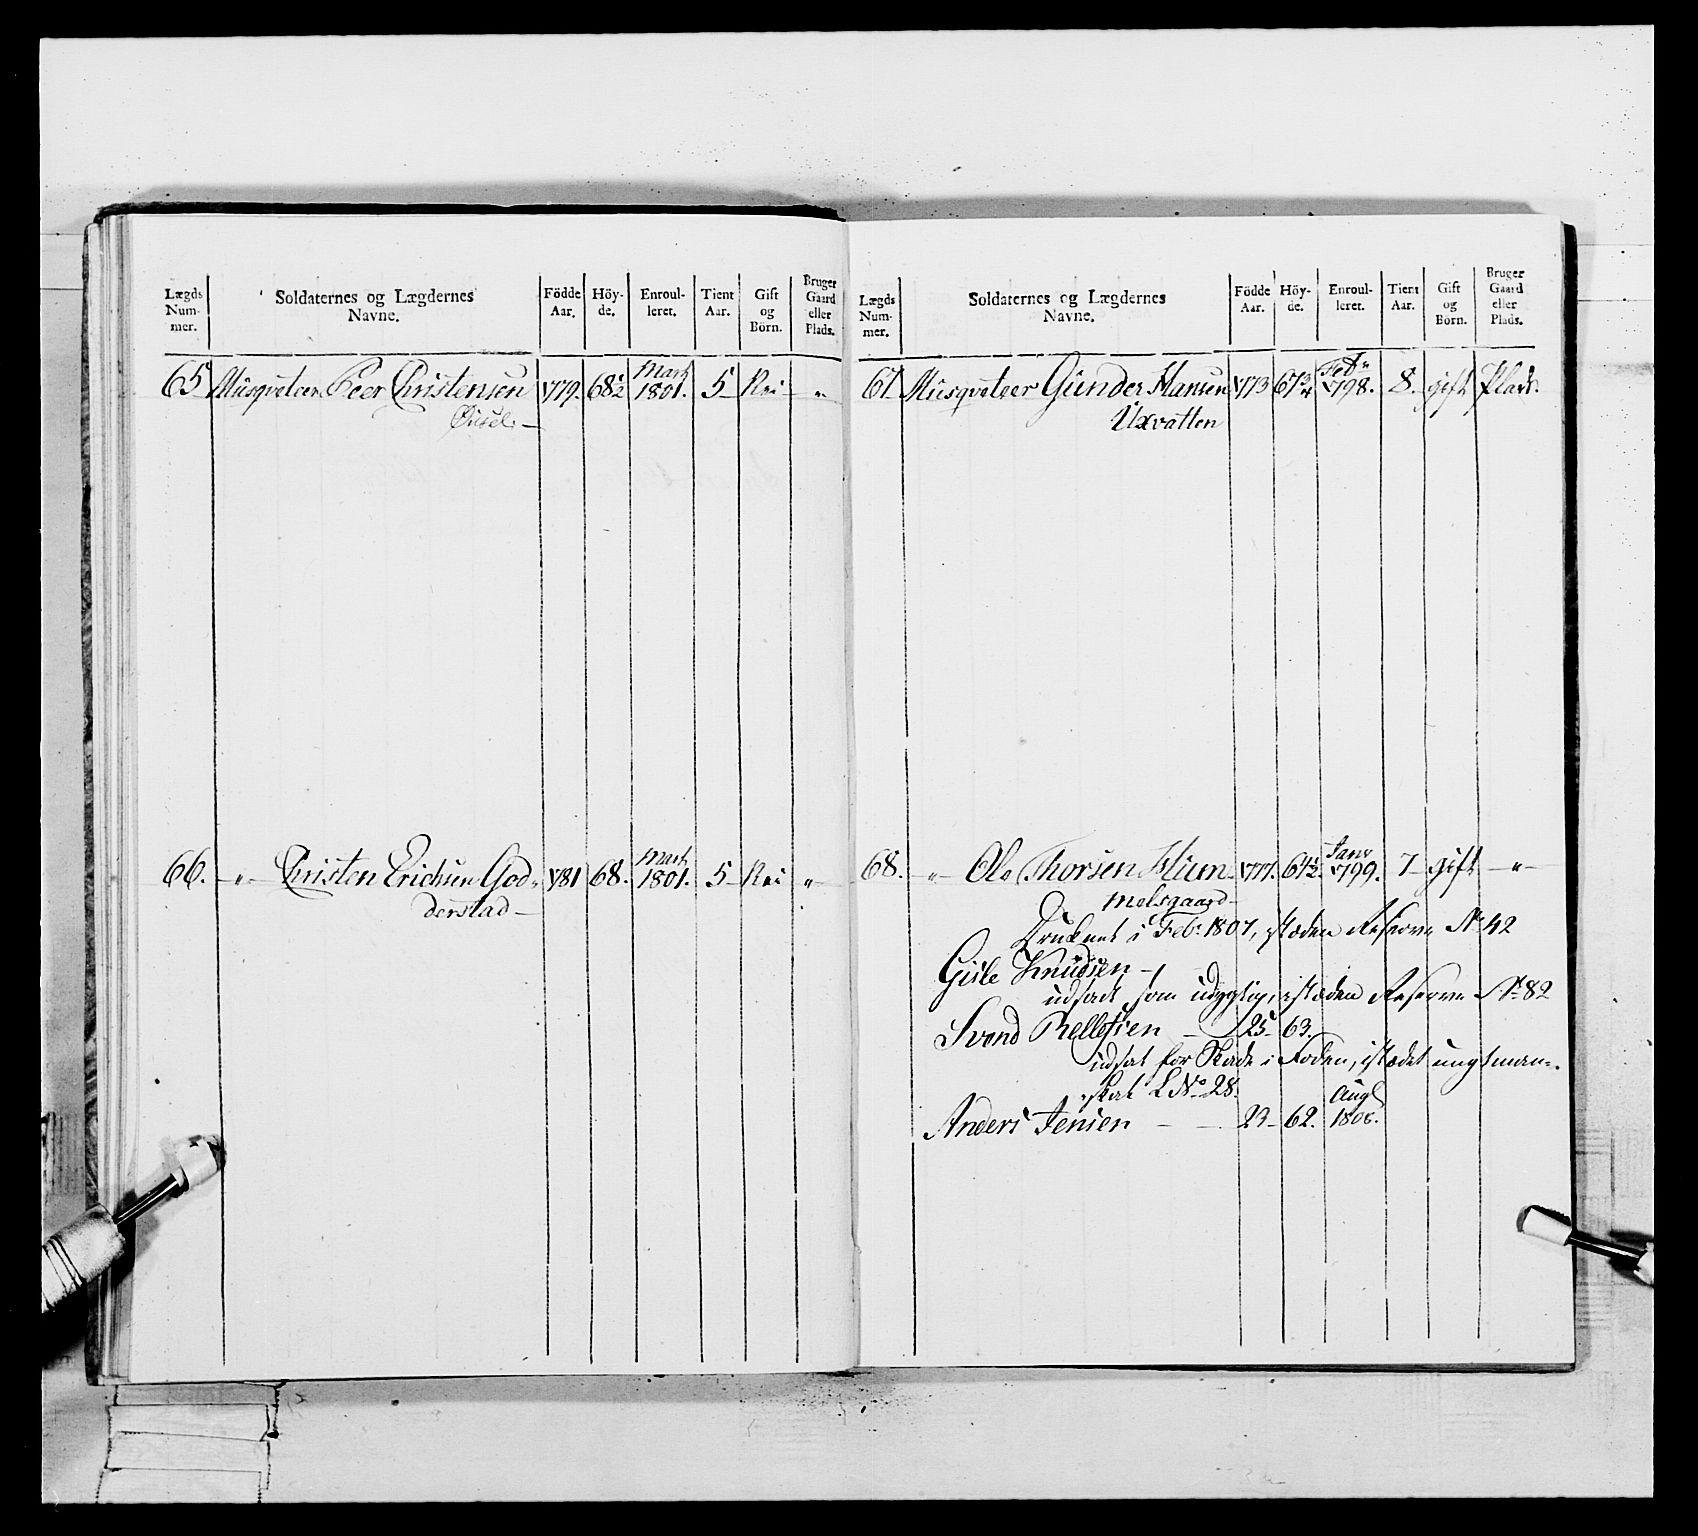 Lægds Num- mer. Soldaternes og Lægdernes Navne. Födde Aar. Höy- de. Enroul- leret. Tient Aar. Gift og Börn. Bruger Gaard eller Plads.
65 Musqueteer Peer Christensen 1779. 68½ Marti 1801. 5 Nei - "
66. - " - Christen Erichsen God- 1781 68. Marti 1801. 5 Nei "
derstad -
Lægds Num- mer. Soldaternes og Lægdernes Navne. Födde Aar. Höy- de. Enroul- leret. Tient Aar. Gift og Börn. Bruger Gaard eller Plads.
67 Musqueteer Gunder Hansen 1773 67¾ Febr 1798. 8. gift Plads.
Uxvatten
68. - " - Ole Thorsen Hum- 1777. 64½ Janv 1799. 7 gift - " -
melsgaard -
Druknet i Febr 1807, istæden Reserve No 42
Gisle Knudsen -
udsadt som udygtig, istæden Reserve No 82
Svend Kellefsen - 25 63.
udsat for Skade i Foden, istædet ungt man-
skab L No 28.
Anders Jensen - - 23 - 62. Augt 1808.